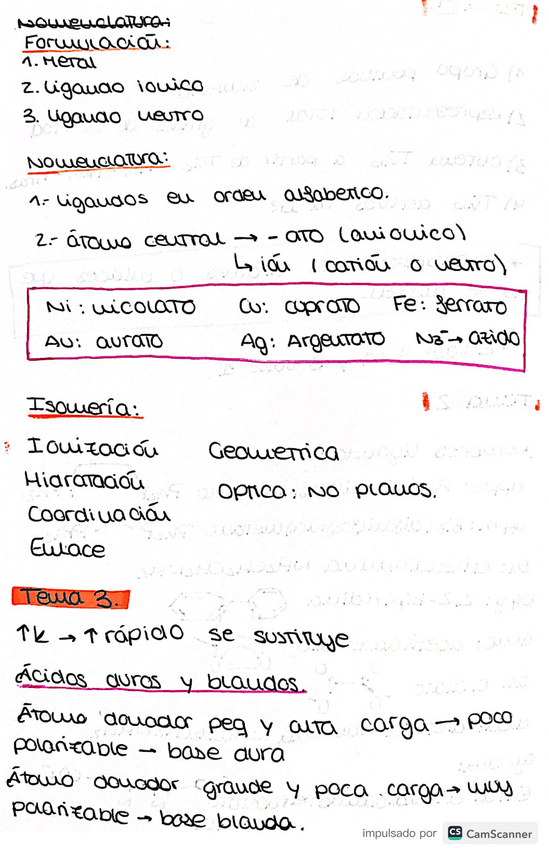 Nomenclatura:
Formulación:
1. Metal
2. Ligando iónico
3. Ligando neutro
Nomenclatura:
1.- Ligandos en orden alfabético.
2.- átomo central → - ato (aniónico)
↳ ión (catión o neutro)
Ni: nicolato Cu: cuprato Fe: ferrato
Au: aurato Ag: Argentato N3⁻→ azido
Isomería:
Ionización Geometrica
Hidratación Optica: No planos.
Coordinación
Enlace
Tema 3.
↑k → ↑ rápido se sustituye
Ácidos duros y blandos.
Átomo donador peq y alta carga → poco
polarizable → base dura
Átomo donador grande y poca carga → muy
polarizable → base blanda.
impulsado por CS CamScanner